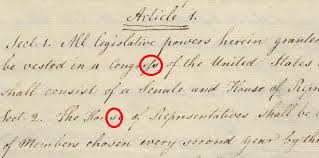 Article 1.
Sect. 1. All legislative powers herein granted
be vested in a Congreſs of the United States
shall consist of a Senate and House of
Sect. 2. The House of Representatives shall be
of Members chosen every second year by the